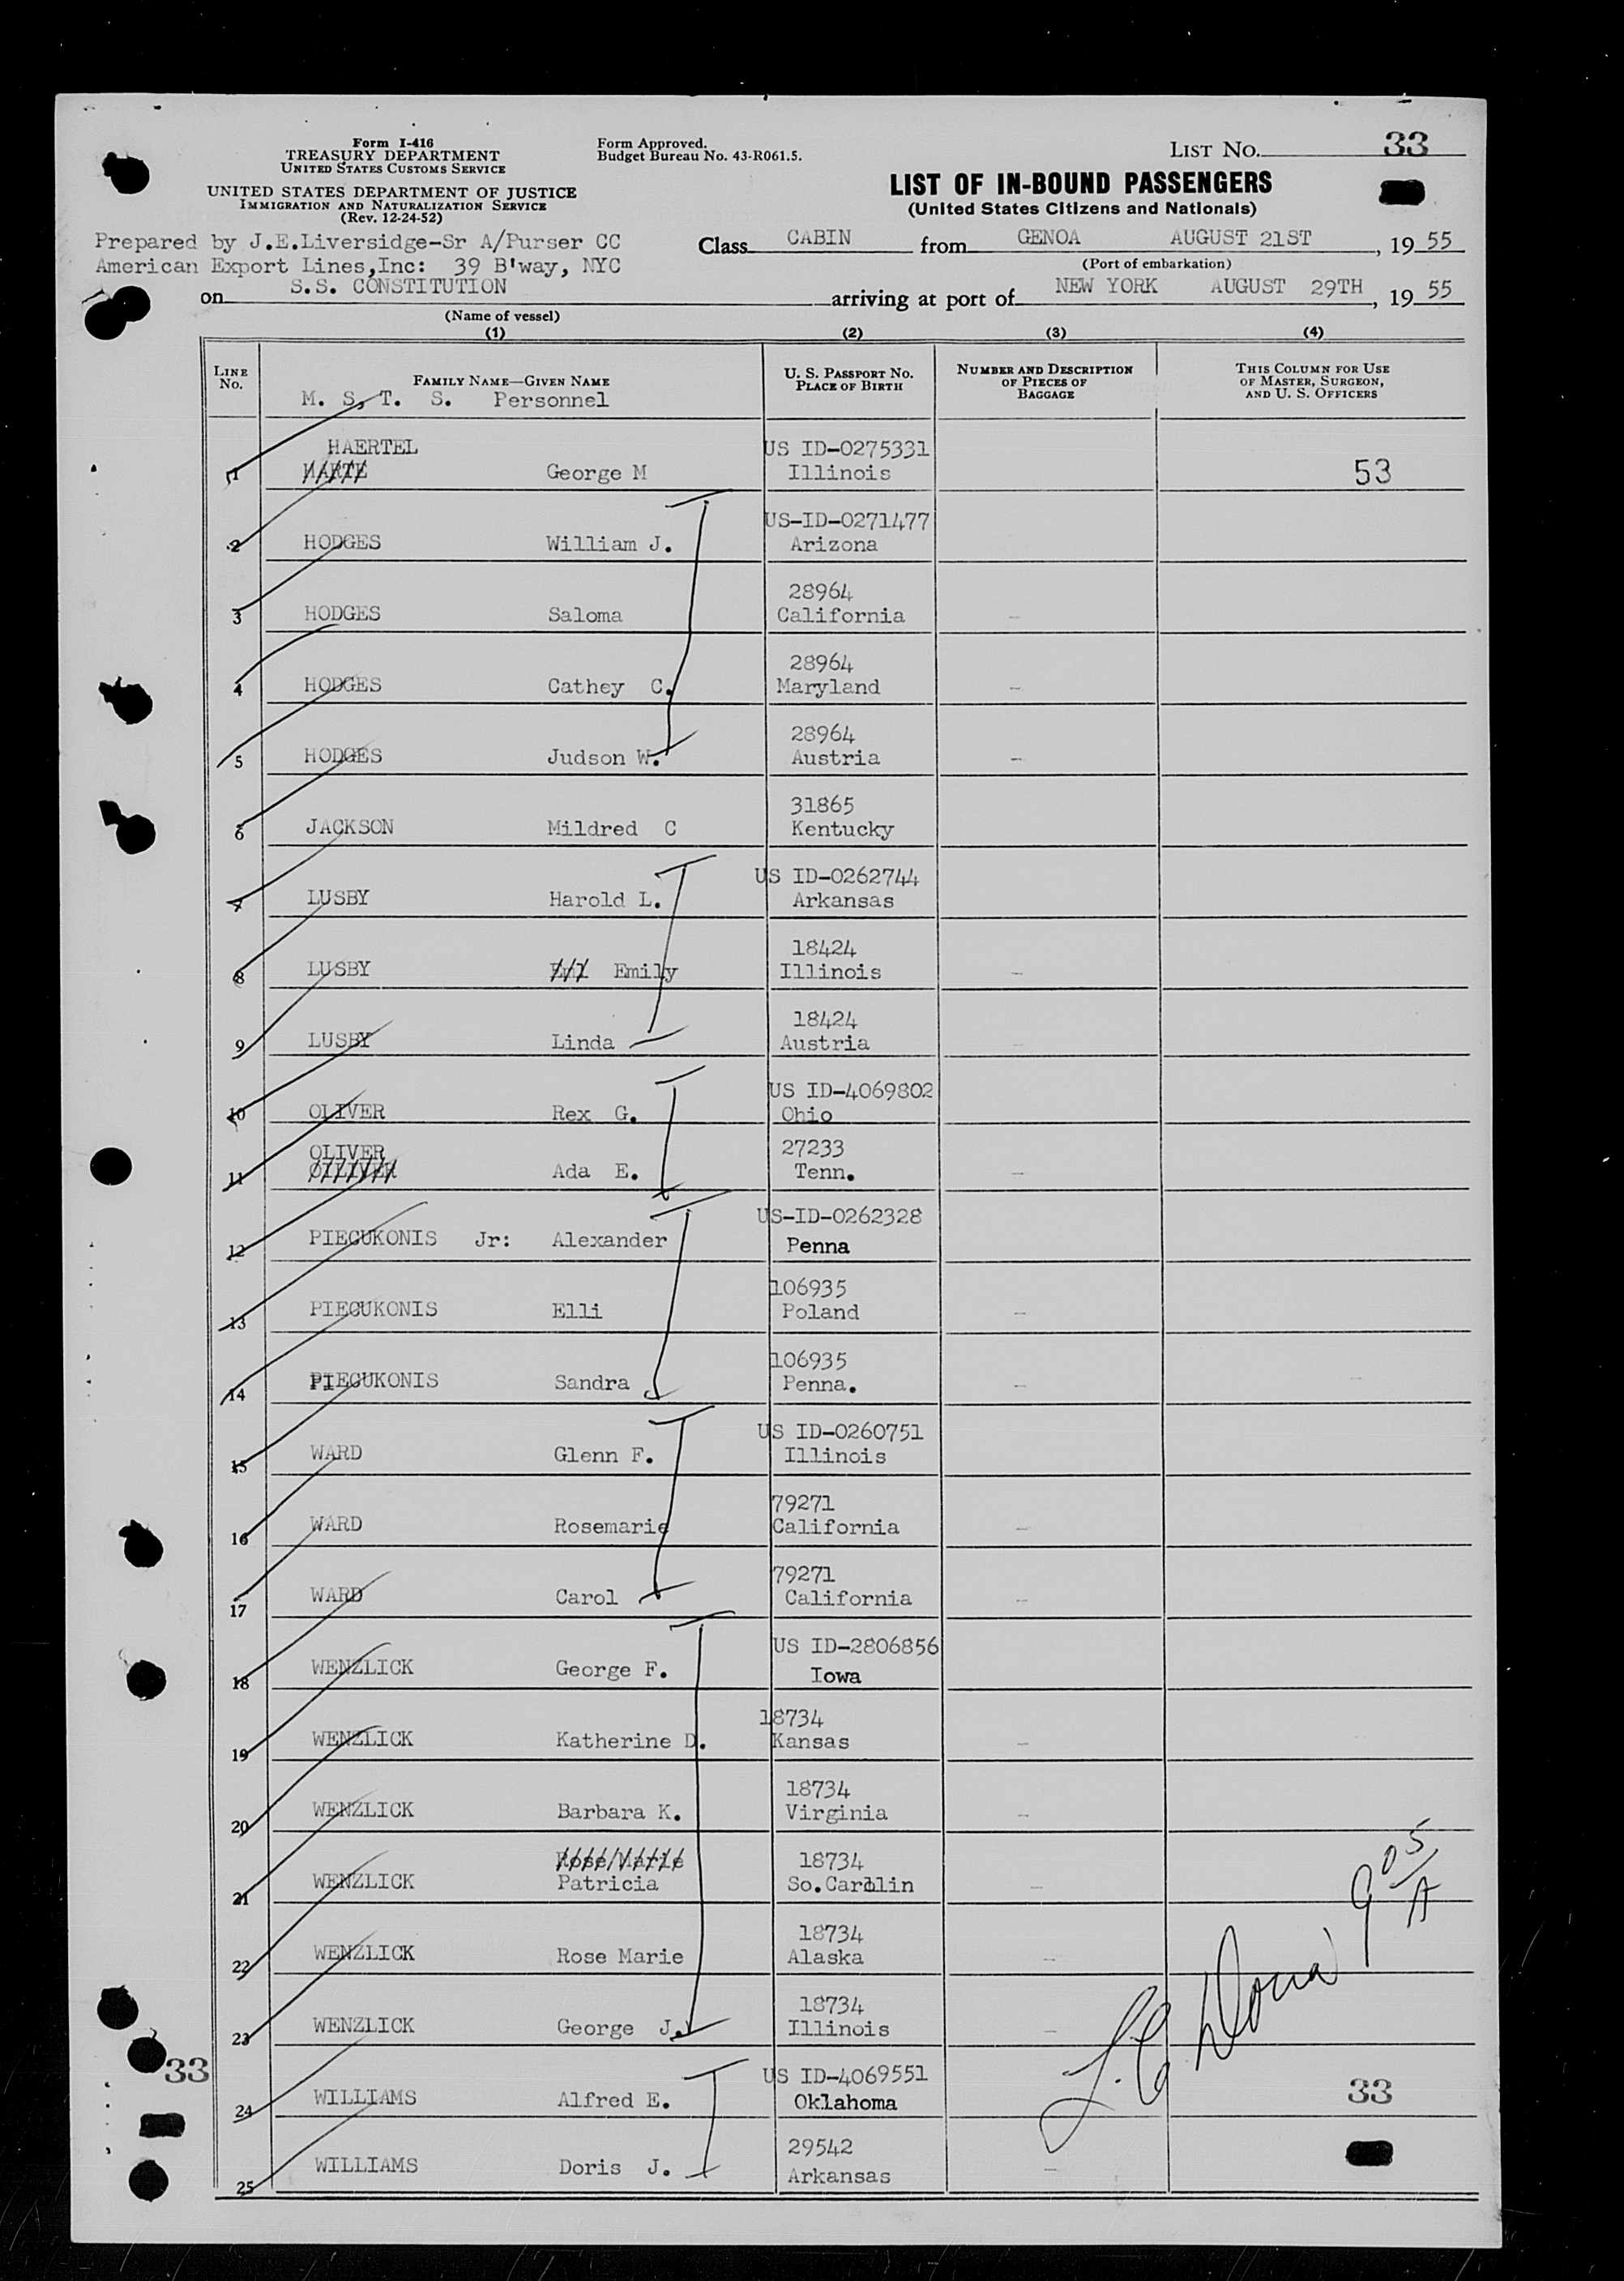 Form I-416
TREASURY DEPARTMENT
UNITED STATES CUSTOMS SERVICE
UNITED STATES DEPARTMENT OF JUSTICE
IMMIGRATION AND NATURALIZATION SERVICE
(Rev. 12-24-52)
Form Approved.
Budget Bureau No. 43-R061.5.
LIST NO. 33
LIST OF IN-BOUND PASSENGERS
(United States Citizens and Nationals)
Prepared by J.E.Liversidge-Sr A/Purser CC
American Export Lines,Inc: 39 B'way, NYC
Class CABIN from GENOA AUGUST 21ST, 19 55
(Port of embarkation)
on S.S. CONSTITUTION arriving at port of NEW YORK AUGUST 29TH, 19 55
(Name of vessel)
(1) (2) (3) (4)
LINE No.
FAMILY NAME—GIVEN NAME
U. S. PASSPORT NO. PLACE OF BIRTH
NUMBER AND DESCRIPTION OF PIECES OF BAGGAGE
THIS COLUMN FOR USE OF MASTER, SURGEON, AND U. S. OFFICERS
M. S, T. S. Personnel
HAERTEL US ID-0275331
1 HARTE George M Illinois 53
US-ID-0271477
2 HODGES William J. Arizona
28964
3 HODGES Saloma California –
28964
4 HODGES Cathey C. Maryland –
28964
5 HODGES Judson W. Austria –
31865
6 JACKSON Mildred C Kentucky
US ID-0262744
7 LUSBY Harold L. Arkansas
18424
8 LUSBY Emily Illinois –
18424
9 LUSBY Linda Austria –
US ID-4069802
10 OLIVER Rex G. Ohio
OLIVER 27233
11 OLLIVER Ada E. Tenn. –
US-ID-0262328
12 PIEGUKONIS Jr: Alexander Penna
106935
13 PIEGUKONIS Elli Poland –
106935
14 PIEGUKONIS Sandra Penna. –
US ID-0260751
15 WARD Glenn F. Illinois
79271
16 WARD Rosemarie California –
79271
17 WARD Carol California –
US ID-2806856
18 WENZLICK George F. Iowa
18734
19 WENZLICK Katherine D. Kansas –
18734
20 WENZLICK Barbara K. Virginia –
Rose Marie 18734
21 WENZLICK Patricia So.Carolin –
18734
22 WENZLICK Rose Marie Alaska –
18734
23 WENZLICK George J. Illinois –
33
US ID-4069551
24 WILLIAMS Alfred E. Oklahoma 33
29542
25 WILLIAMS Doris J. Arkansas –
905/A